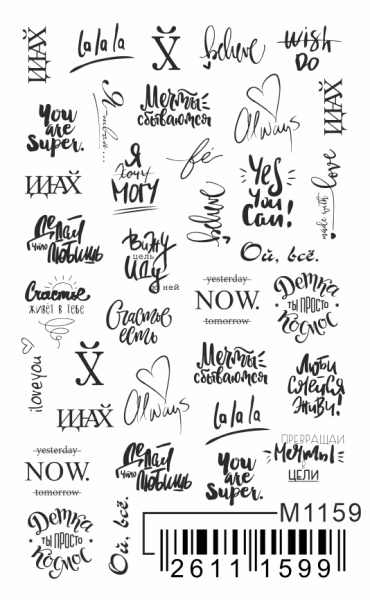 ЩАХ
la la la
Й
believe
wish
DO
ЩАХ
You
are
Super.
Мечты
сбываются
Always
Я
хочу
МОГУ
YES
you
Can!
made with love
ЩАХ
believe
Делай
что
Любишь
Вижу
цель
Иду
к ней
Ой, всё.
Счастье
ЖИВЁТ В ТЕБЕ
Счастье
есть
yesterday
NOW.
tomorrow
Детка
ТЫ ПРОСТО
Космос
i love you
Й
Always
Мечты
сбываются
Люби
Смейся
Живи!
ЩАХ
la la la
yesterday
NOW.
tomorrow
Делай
что
Любишь
You
are
Super.
ПРЕВРАЩАЙ
Мечты
В
ЦЕЛИ
Детка
ТЫ ПРОСТО
Космос
Ой, всё.
M1159
2611 1599